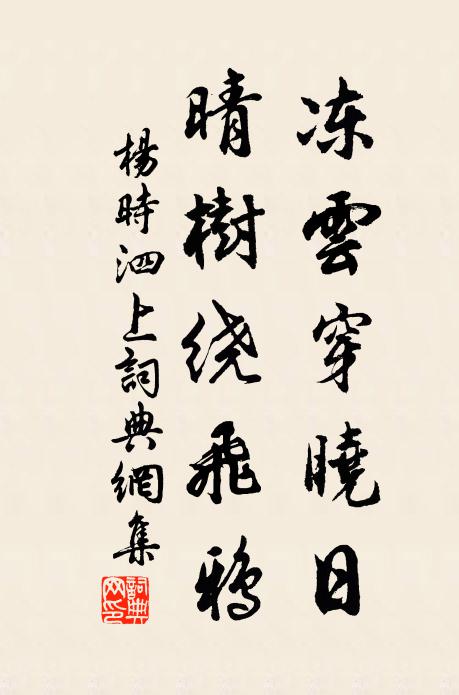 冻雲穿曉日
晴樹绕飛鸦
楊時泗上詞典網集
詞典网印